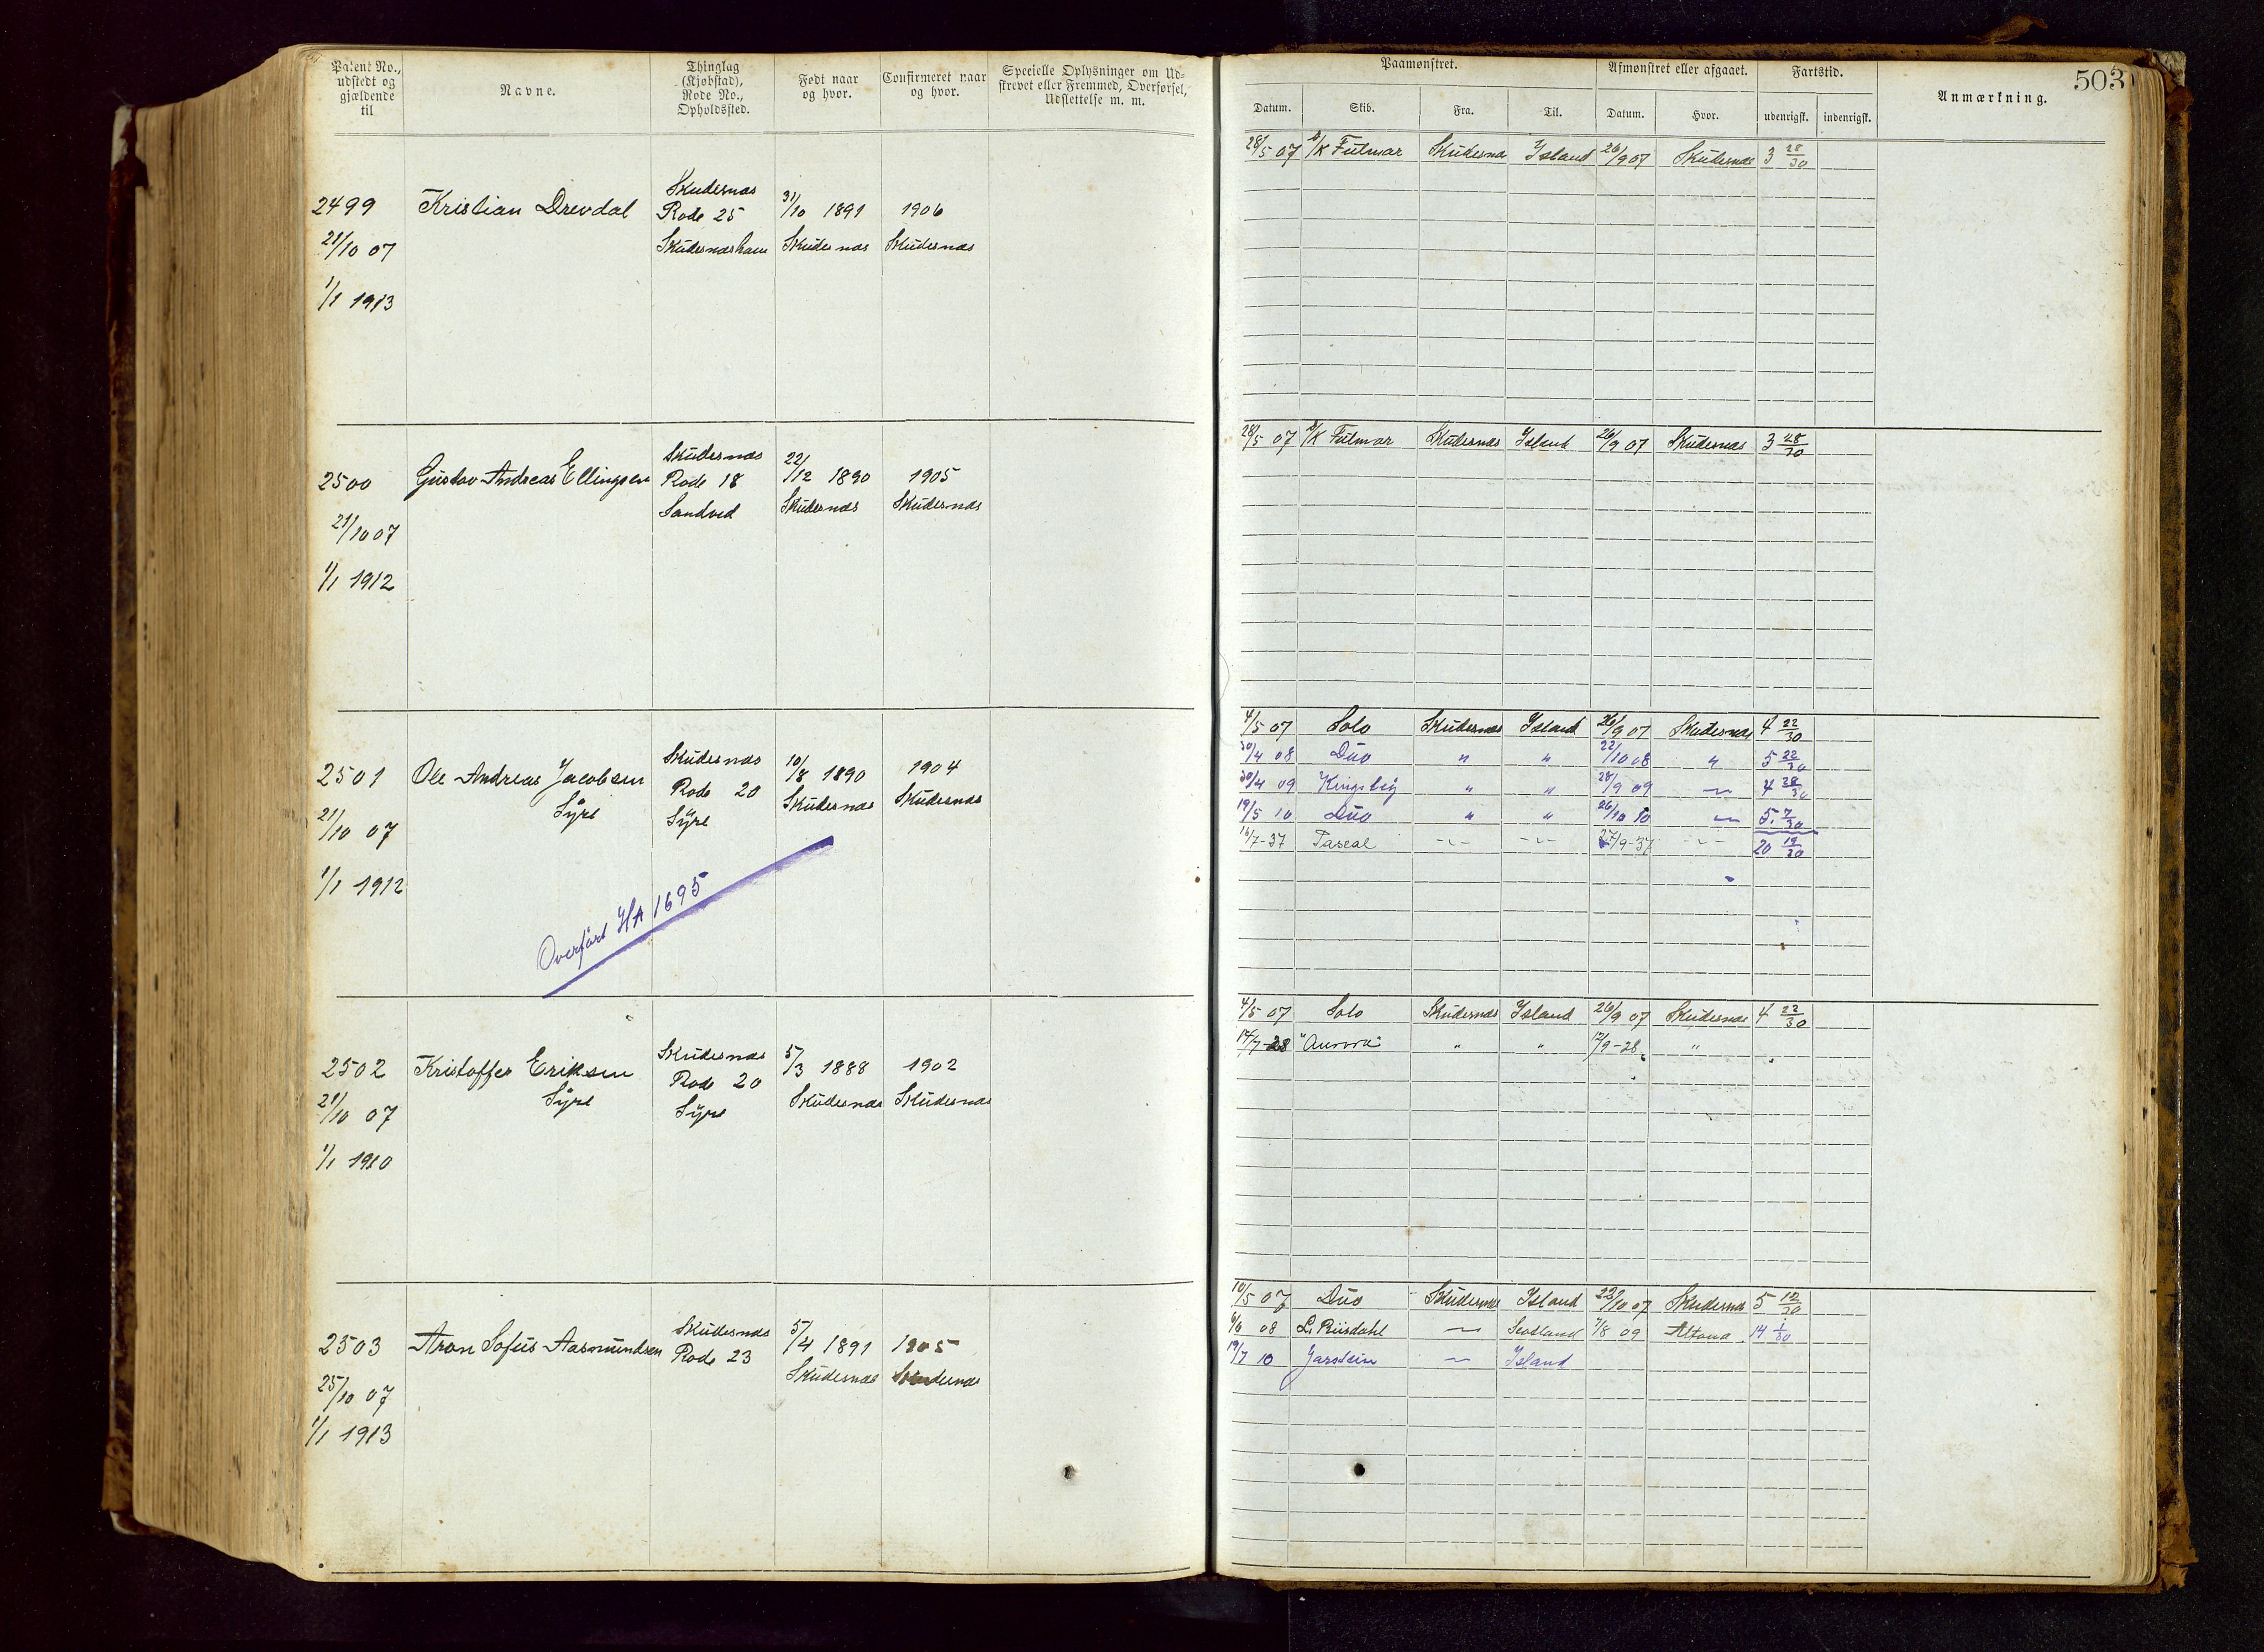 Patent No., udstedt og gjældende til
Navne.
Thinglag (Kjøbstad), Rode No., Opholdssted.
Født naar og hvor.
Confirmeret naar og hvor.
Specielle Oplysninger om Udstrevet eller Fremmed, Overførsel, Udslettelse m. m.
Paamønstret.
Afmønstret eller afgaaet.
Fartstid.
Anmærkning.
503
Datum. Skib. Fra. Til. Datum. Hvor. udenrigsk. indenrigsk.
2499 Kristian Drevdal
21/10 07
1/1 1913
Skudesnæs
Rode 25
Skudesneshavn
31/10 1891
Skudesnæs
1906
Skudesnæs
28/5 07 D/K Fulmar Skudesnæs Island 26/9 07 Skudesnæs 3 28/30
2500 Gustav Andreas Ellingsen
21/10 07
1/1 1912
Skudesnæs
Rode 18
Sandved
22/12 1890
Skudesnæs
1905
Skudesnæs
28/5 07 D/K Fulmar Skudesnæs Island 26/9 07 Skudesnæs 3 28/30
2501 Ole Andreas Jacobsen
Syre
21/10 07
1/1 1912
Skudesnæs
Rode 20
Syre
10/8 1890
Skudesnæs
1904
Skudesnæs
Overført HA 1695
4/5 07 Solo Skudesnæs Island 26/9 07 Skudesnæs 4 22/30
30/4 08 Duo " " 22/10 08 " 5 22/30
30/4 09 Kingsley " " 28/9 09 — 4 28/30
19/5 10 Duo " " 26/10 10 — 5. 7/30
16/7-37 Pascal -"- -"- 27/9-37 -"- 20 19/30
2502 Kristoffer Eriksen
Syre
21/10 07
1/1 1910
Skudesnæs
Rode 20
Syre
5/3 1888
Skudesnæs
1902
Skudesnæs
4/5 07 Solo Skudesnæs Island 26/9 07 Skudesnæs 4 22/30
14/7-28 "Aurora" " " 12/9-28 "
2503 Aron Sofus Aasmundsen
25/10 07
1/1 1913
Skudesnæs
Rode 23
5/4 1891
Skudesnæs
1905
Skudesnæs
10/5 07 Duo Skudesnæs Island 22/10 07 Skudesnæs 5 12/30
6/6 08 L. Riisdahl — Scotland 7/8 09 Altona 14 1/30
19/7 10 Jarstein — Island